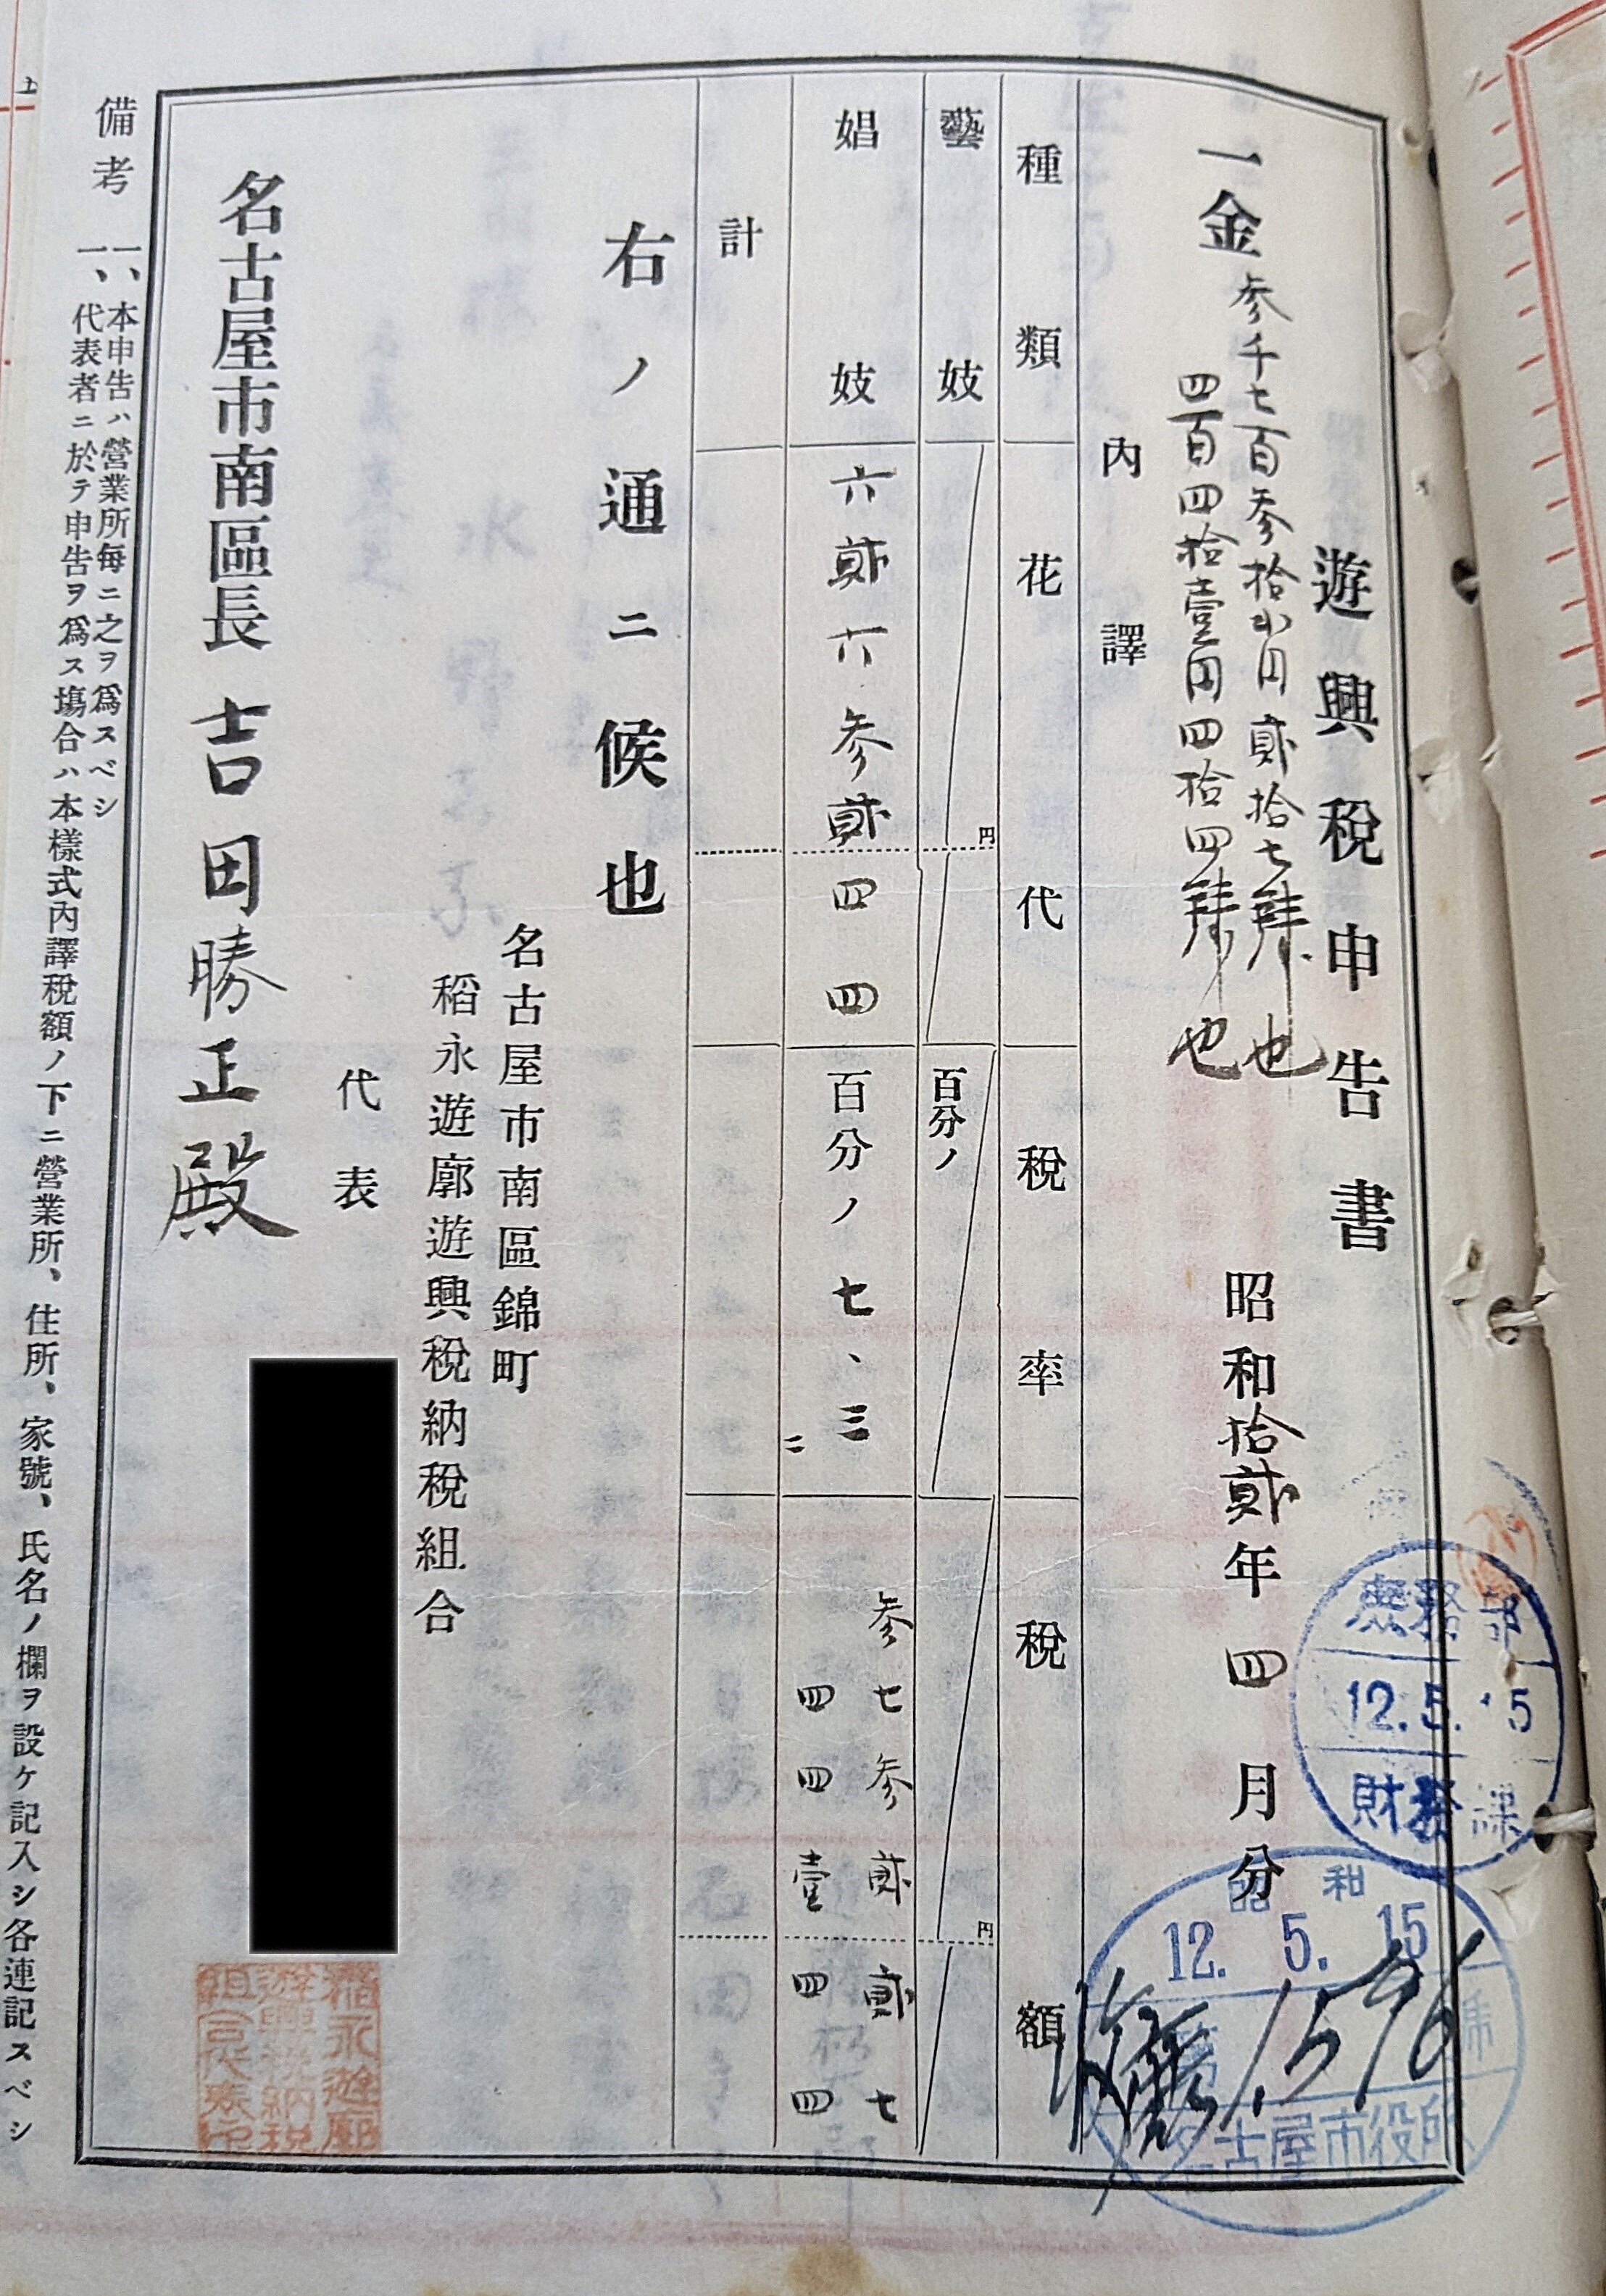 遊興税申告書
昭和拾貳年四月分
一金
参千七百参拾弐円貳拾七銭也
四百四拾壹円四拾四銭也
內譯
種類 花代 税率 税額
藝妓 円 百分ノ 円
娼妓 六貳六参貳四四 百分ノ七、三 参七参貳貳七
二 四四壹四四
計
右ノ通ニ候也
名古屋市南區錦町
稻永遊廓遊興税納税組合
代表
名古屋市南區長 吉田勝正殿
備考 一、本申告ハ營業所每ニ之ヲ爲スベシ
一、代表者ニ於テ申告ヲ爲ス塲合ハ本樣式內譯税額ノ下ニ營業所、住所、家號、氏名ノ欄ヲ設ケ記入シ各連記スベシ
庶務部
12.5.15
財務課
昭和
12. 5. 15
名古屋市役所
1.596
稻永遊廓
遊興税納税
組合代表印